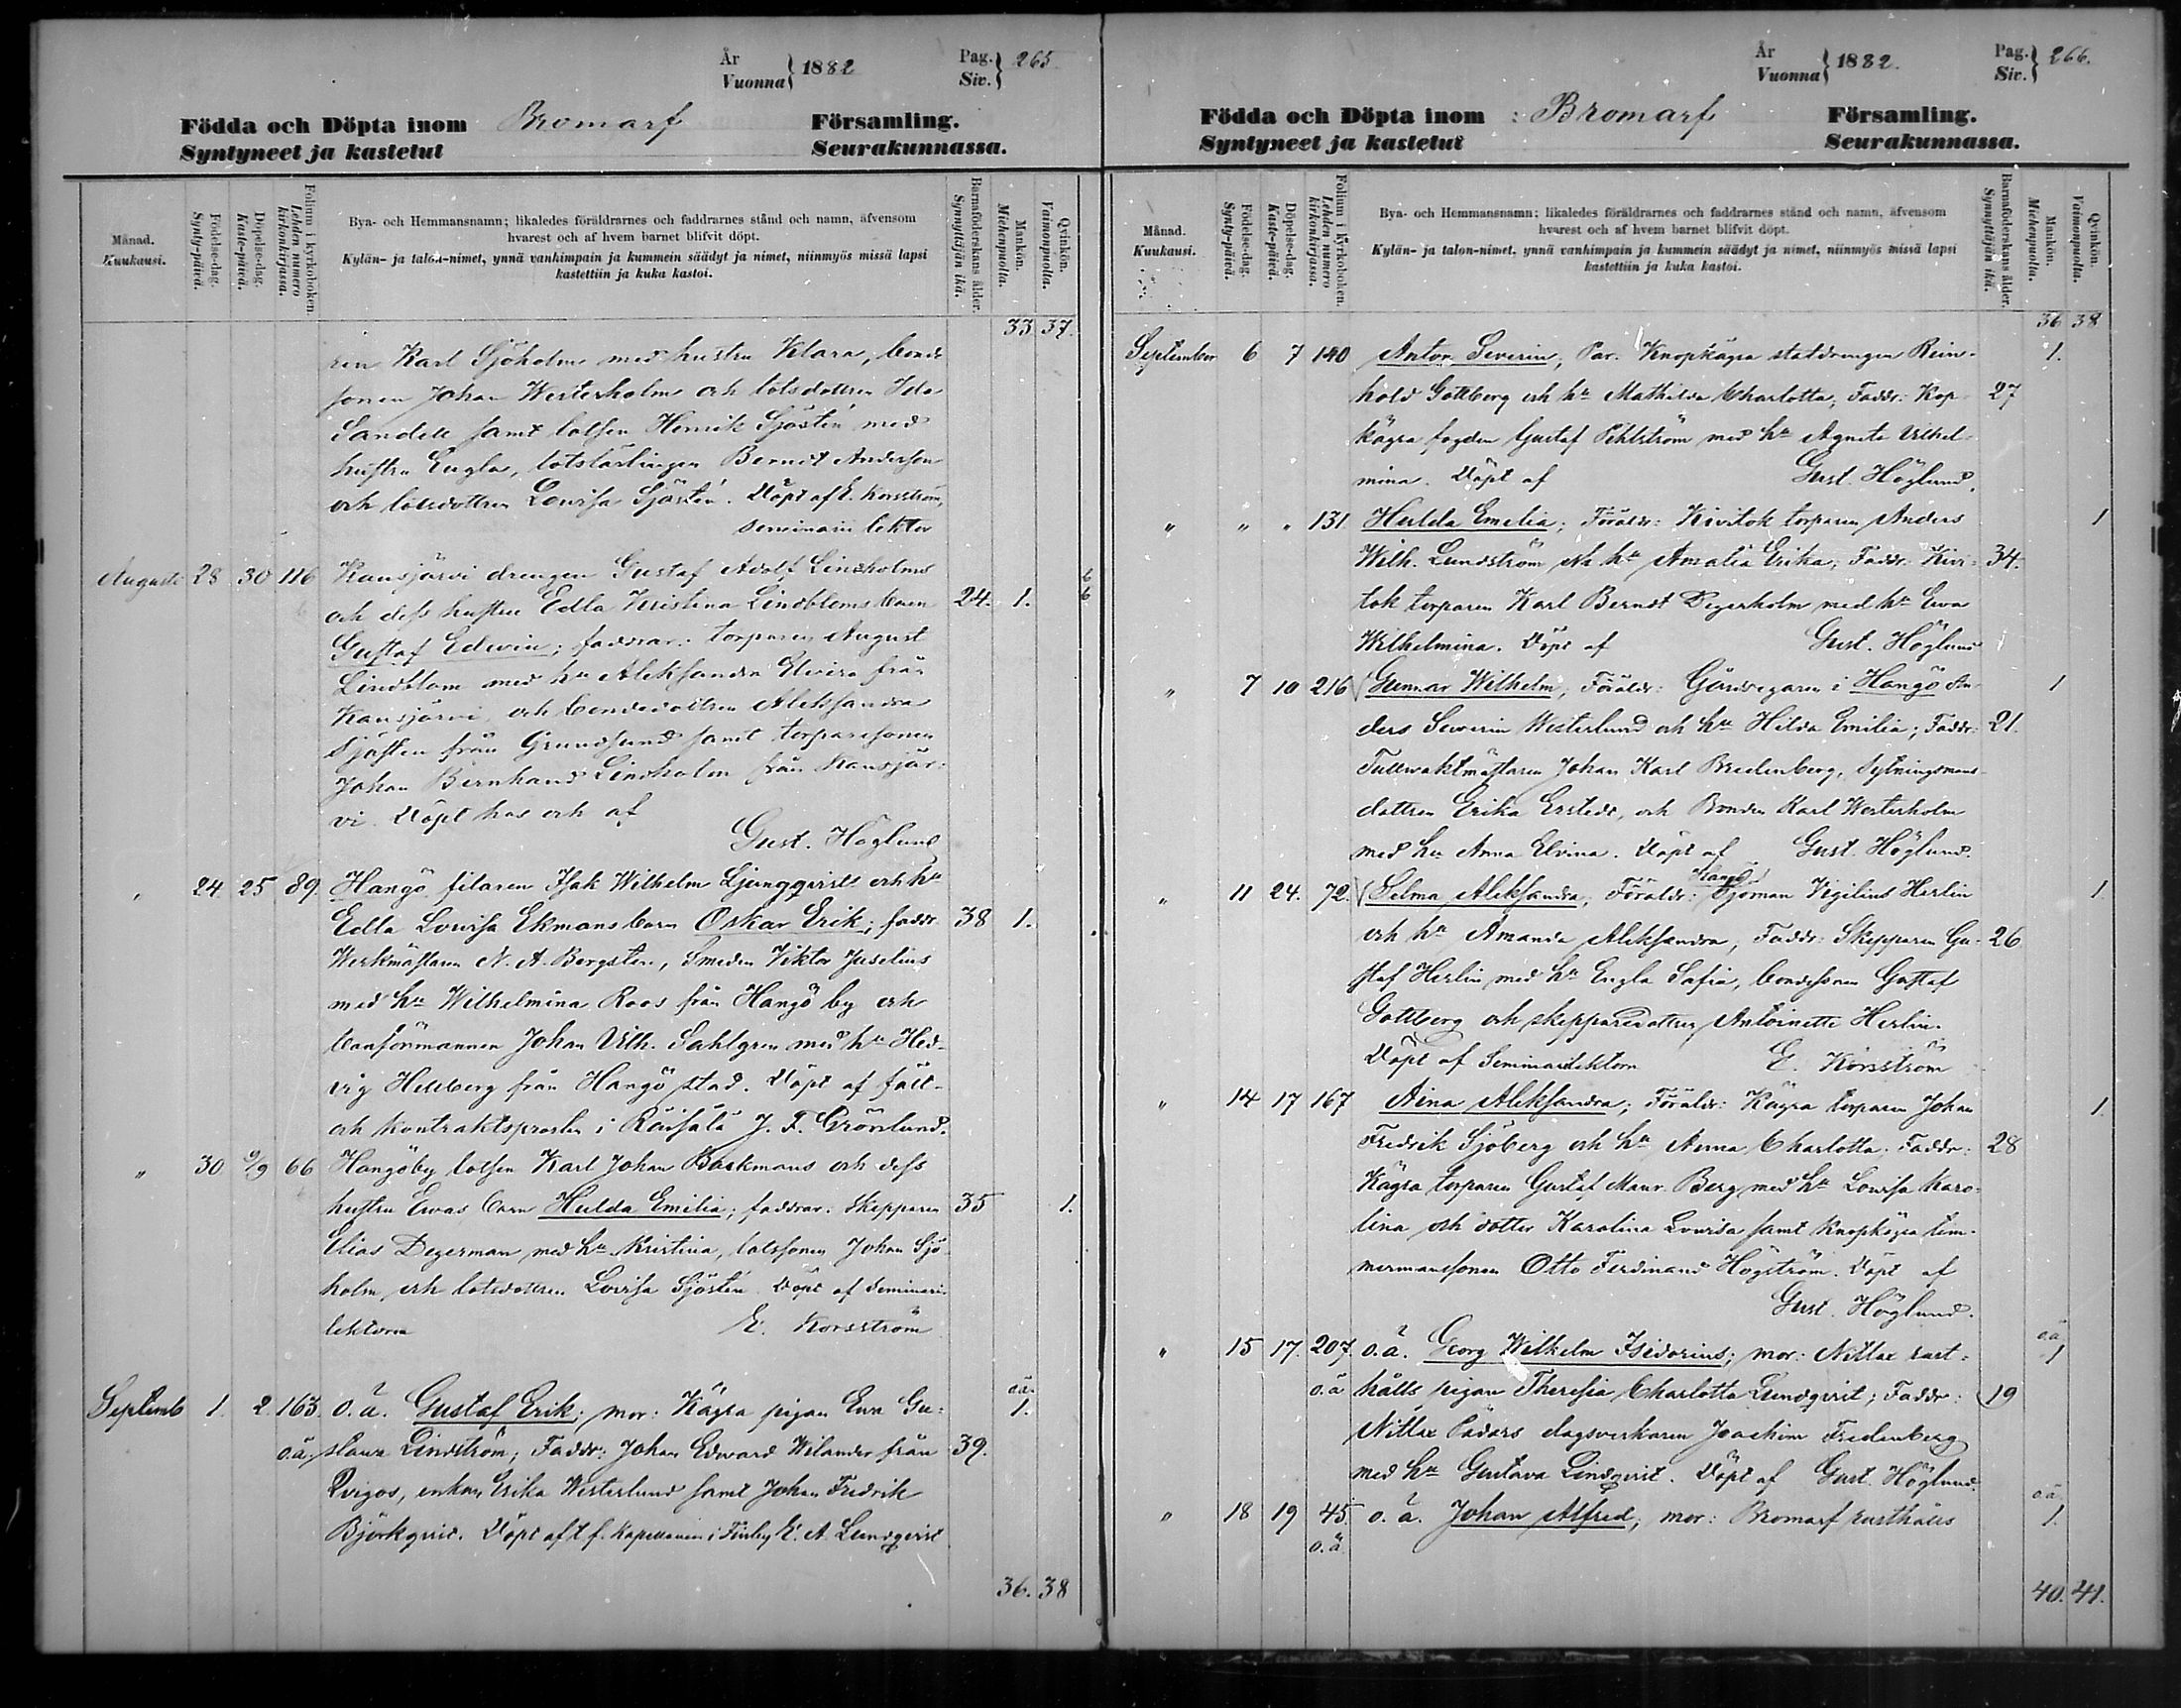 År
Vuonna } 1882 Pag.
Siv. } 265
Födda och Döpta inom Bromarf Församling.
Syntyneet ja kastetut Seurakunnassa.
Månad.
Kuukausi.
Födelse-dag.
Synty-päivä.
Döpelse-dag.
Kaste-päivä.
Folium i kyrkoboken.
Lehden numero kirkonkirjassa.
Bya- och Hemmansnamn; likaledes föräldrarnes och faddrarnes stånd och namn, äfvensom
hvarest och af hvem barnet blifvit döpt.
Kylän- ja talon-nimet, ynnä vanhimpain ja kummein säädyt ja nimet, niinmyös missä lapsi
kastettiin ja kuka kastoi.
Barnaföderskans ålder.
Synnyttäjän ikä.
Mankön.
Miehenpuolta.
Qvinkön.
Vaimonpuolta.
33 37.
ren Karl Sjöholm med hustru Klara, bonde
sonen Johan Westerholm och lotsdottren Ida
Sandell samt lotsen Henrik Sjöstén med
hustru Engla, lotslärlingen Berndt Anderson
och lotsdottren Lovisa Sjöstén. Döpt af E. Korsström,
seminarii lektor
Augusti 28 30 116 Kansjärvi drengen Gustaf Adolf Lindholms
och dess hustru Edla Kristina Lindbloms barn 24. 1.
Gustaf Edwin; faddrar: torparen August
Lindblom med hu Aleksandra Elvira från
Kansjärvi och bondedottren Aleksandra
Sjösten från Grundsund samt torparesonen
Johan Bernhard Lindholm från Kansjär-
vi. Döpt hos och af
Gust. Höglund
„ 24 25 89. Hangö filaren Isak Wilhelm Ljungqvists och hu
Edla Lovisa Ekmans barn Oskar Erik; faddr. 38 1.
Werkmästaren N. A. Bergsten, Smeden Viktor Juselius
med hu Wilhelmina Roos från Hangö by och
banförmannen Johan Vilh. Sahlgren med hu Hed-
vig Hellberg från Hangö stad. Döpt af fält-
och kontraktsprosten i Räisälä J. F. Grönlund.
„ 30 9/9 66 Hangöby lotsen Karl Johan Backmans och dess
hustru Ewas barn Hulda Emilia; faddrar: Skepparen 35 1.
Elias Degerman med hu Kristina, lotssonen Johan Sjö-
holm och lotsdottren Lovisa Sjöstén. Döpt af Seminarii
lektorn E. Korsström
Septemb 1. 2. 163. o.ä. Gustaf Erik; mor: Kägra pigan Eva Gu- o.ä. 1.
o.ä. stava Lindström; Faddr: Johan Edward Wilander från 39.
Qvigos, enkan Erika Westerlund samt Johan Fredrik
Björkqvist. Döpt af t. f. Kapellanen i Finby E. A. Lundqvist
36. 38
År
Vuonna } 1882. Pag.
Siv. } 266.
Födda och Döpta inom Bromarf Församling.
Syntyneet ja kastetut Seurakunnassa.
Månad.
Kuukausi.
Födelse-dag.
Synty-päivä.
Döpelse-dag.
Kaste-päivä.
Folium i Kyrkoboken.
Lehden numero kirkonkirjassa.
Bya- och Hemmansnamn; likaledes föräldrarnes och faddrarnes stånd och namn, äfvensom
hvarest och af hvem barnet blifvit döpt.
Kylän- ja talon-nimet, ynnä vanhimpain ja kummein säädyt ja nimet, niinmyös missä lapsi
kastettiin ja kuka kastoi.
Barnaföderskans ålder.
Synnyttäjän ikä.
Mankön.
Miehenpuolta.
Qvinkön.
Vaimonpuolta.
36 38
September 6 7 140 Anton Severin, Par. Knopkägra statdrengen Rein- 1.
hold Gottberg och hu Mathilda Charlotta; Faddr: Kop 27
kägra fogden Gustaf Pihlström med hu Agneta Vilhel-
mina. Döpt af Gust. Höglund.
„ „ „ 131. Hulda Emelia; Föräldr: Kivitok torparen Anders 1
Wilh. Lundström och hu Amalia Erika; Faddr: Kivi- 34.
tok torparen Karl Berndt Degerholm med hu Ewa
Wilhelmina. Döpt af Gust. Höglund
„ 7 10 216 Gunnar Wilhelm; Föräldr: Gårdsegaren i Hangö An- 1
ders Severin Westerlund och hu Hilda Emilia; Faddr: 21.
Tullvaktmästaren Johan Karl Bredenberg, Sytningsmans-
dottren Erika Erstedt, och Bonden Karl Westerholm
med hu Anna Elvina. Döpt af Gust. Höglund.
Hangö
„ 11 24. 72. Selma Aleksandra; Föräldr: Sjöman Vigilius Herlin 1.
och hu Amanda Aleksandra; Faddr: Skepparen Gu- 26
staf Herlin med hu Engla Sofia, bondesonen Gustaf
Gottberg och skepparedottren Antoinette Herlin.
Döpt af Seminarilektorn E. Korsström
„ 14 17 167 Aina Aleksandra; Föräldr: Kägra torparen Johan 1.
Fredrik Sjöberg och hu Anna Charlotta. Faddr: 28
Kägra torparen Gustaf Maur. Berg med hu Lovisa Karo-
lina och dotter Karolina Lovisa samt Knopkägra tim-
mermanssonen Otto Ferdinand Högström. Döpt af
Gust. Höglund.
„ 15 17. 207. o.ä. Georg Wilhelm Isidorius; mor: Nitlax rust- o.ä. 1
o.ä hålls pigan Theresia Charlotta Lundqvist; Faddr: 19
Nitlax Pädars dagsverkaren Joachim Fredenberg
med hu Gustava Lindqvist. Döpt af Gust. Höglund.
„ 18 19 45. o. ä. Johan Alfred; mor: Bromarf rusthålls o.ä. 1.
o.ä.
40. 41.